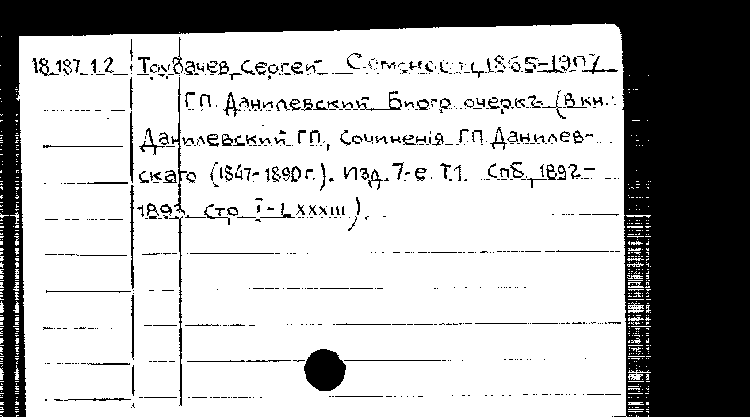 18.187.1.2 Трубачев, Сергей Семенович, 1865-1907
Г.П. Данилевский. Биогр. очеркъ (В кн.:
Данилевский Г.П., Сочиненія Г.П. Данилев-
скаго (1847-1890 г.). Изд. 7-е. Т.1. Спб., 1892-
1893. стр. I-LXXXIII).